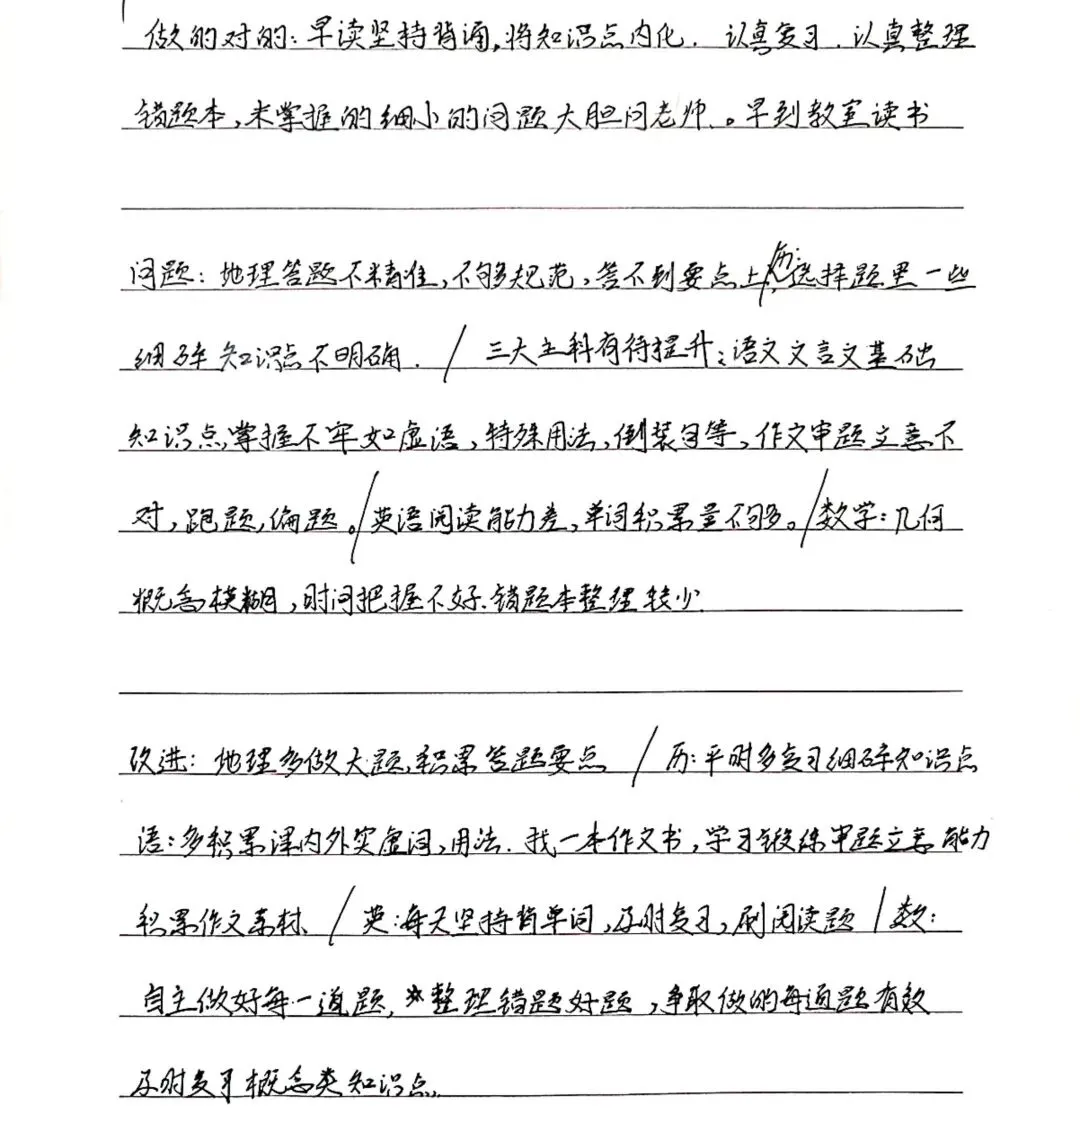 做的对的：早读坚持背诵,将知识点内化．认真复习．认真整理
错题本,未掌握的细小的问题大胆问老师．。早到教室读书
问题：地理答题不精准,不够规范,答不到要点上/历：选择题里一些
细碎知识点不明确．/三大主科有待提升：语文文言文基础
知识点掌握不牢如虚语,特殊用法,倒装句等,作文审题立意不
对,跑题,偏题。/英语阅读能力差,单词积累量不够。/数学：几何
概念模糊,时间把握不好．错题本整理较少．
改进：地理多做大题,积累答题要点／历：平时多复习细碎知识点
语：多积累课内外实虚词,用法．找一本作文书,学习锻练审题立意能力
积累作文素材、/英：每天坚持背单词,及时复习,刷阅读题/数：
自主做好每一道题,*整理错题好题,争取做的每道题有效
及时复习概念类知识点．